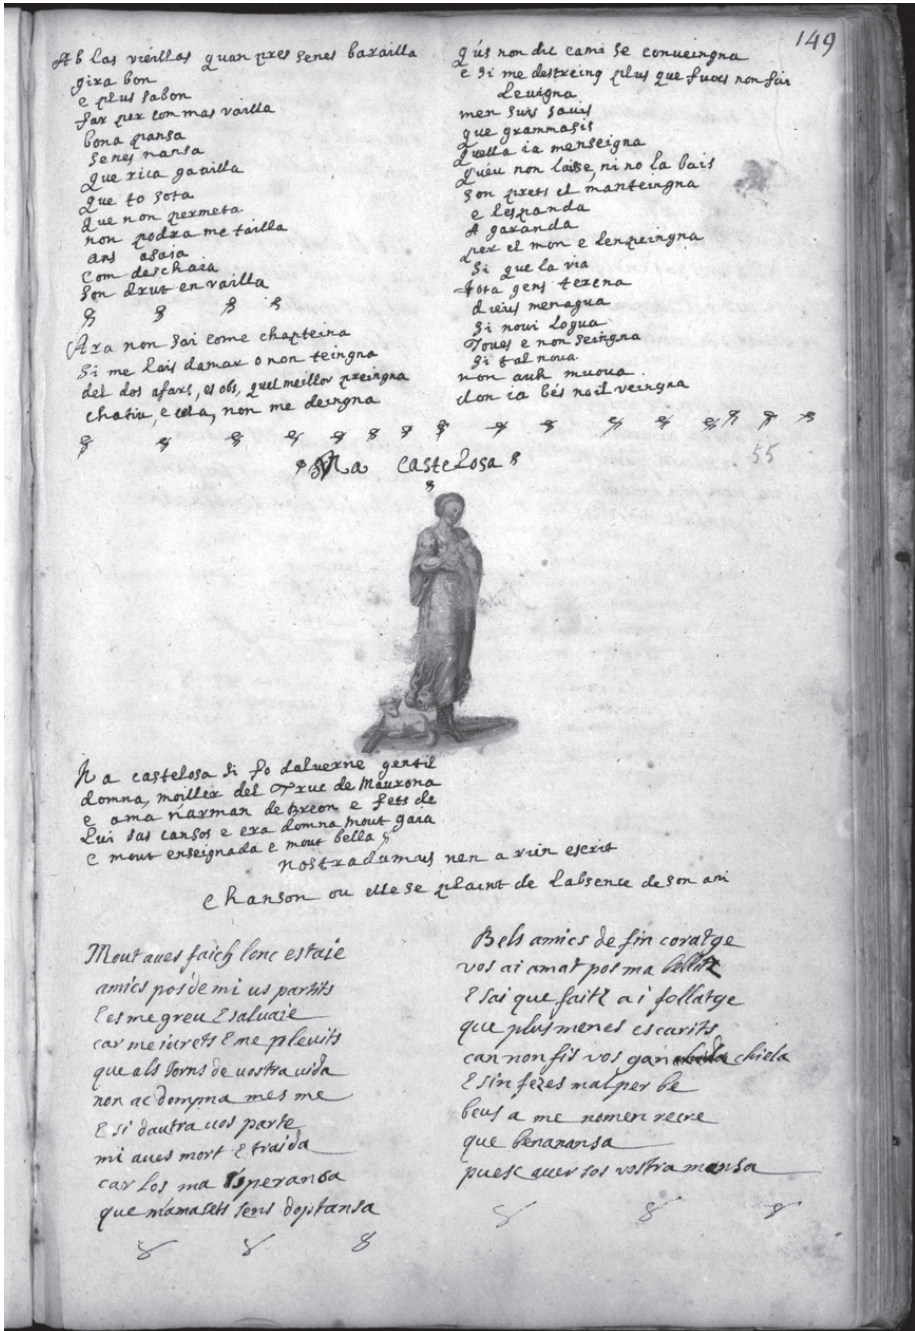 149
Ab las vieillas quan pres senes baxailla
gixa bon
e plus sabon
far per con mas vailla
bona pansa
senes nansa
que rica gavilla
que to sota
que non permeta
non podra me tailla
ans asaia
com deschaia
son drut en vailla
Ara non sai come chapteina
Si me lais damar o non teingna
del dos afars, es obs, quel meillor preingna
chatiu, e cela, non me deingna
qus non dic cami se conveingna
e si me destreing plus que fuocs non fai
Leuigna
men suis sauis
que grammasis
quella ia menseigna
queu non laisse, ni no la bais
son prets el manteingna
e lespanda
A garanda
per el mon e lenpeingna
Si que la via
tota gens terena
dieus menagua
Si noui logua
Joues e non seingna
Si tal noua
non auh muoua
don ia bés nail veingna
55
Na castelosa
Na castelosa si fo daluerne gentil
domna, moiller del Truc de Maurona
e ama narman de Breon e fets de
Lui sas cansos e era domna mout gaia
e mout enseignada e mout bella
nostradamus nen a rien escrit
chanson ou elle se plaint de labsence de son ami
Mout aues faich lonc estaie
amics pos de mi us partits
E es me greu E saluaie
car me iurets E me pleuits
que als Jorns de uostra uida
non ac dompna mes me
E si dautra uos parte
mi aues mort E traida
car Los ma Esperansa
que mamasets sens doptansa
Bels amics de fin coratge
vos ai amat pos ma
E sai que faitz a i follatge
que plus menes escarits
can non fis vos gan chiela
E sin fezes mal per be
beus a me nomen recre
que benanansa
puesc auer sos vostra mansa